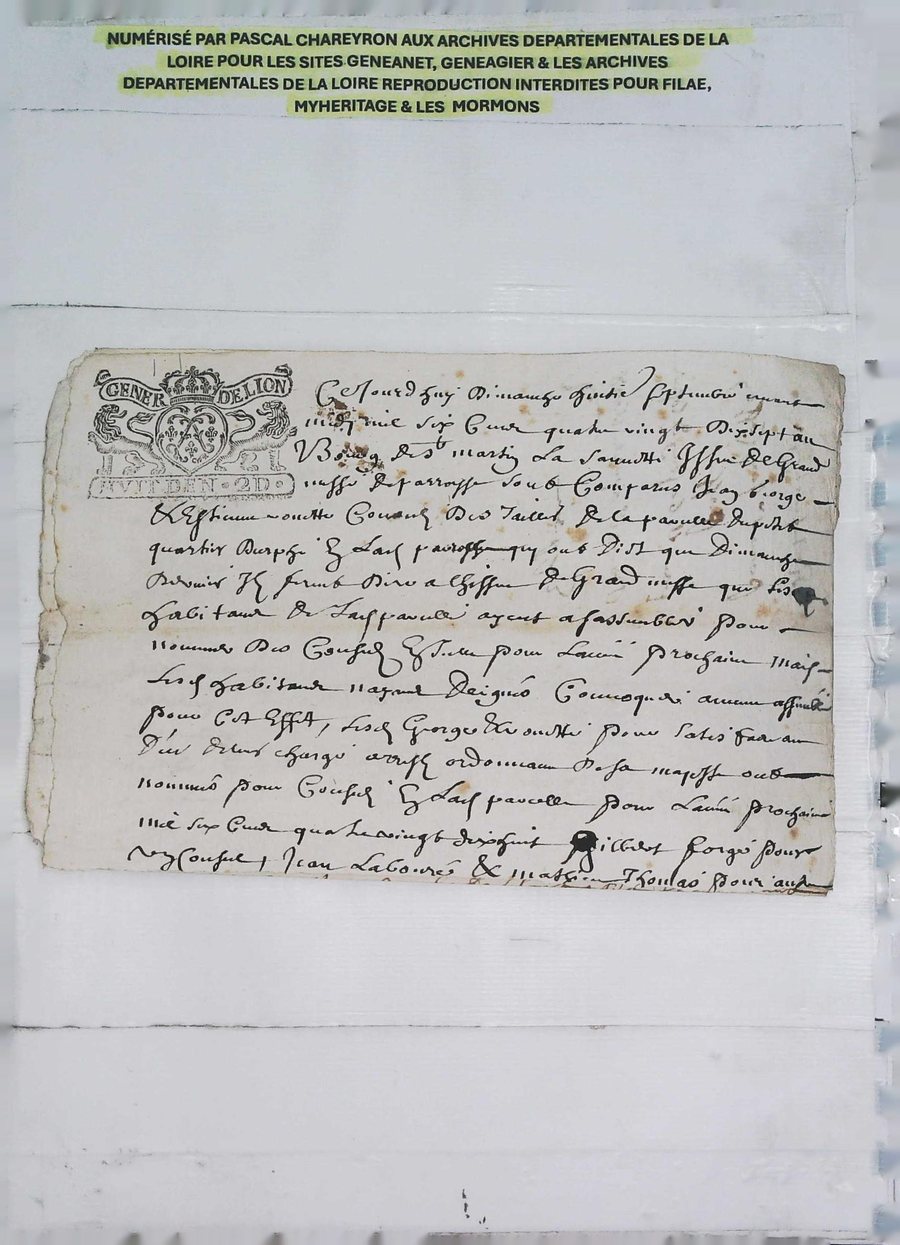 NUMÉRISÉ PAR PASCAL CHAREYRON AUX ARCHIVES DEPARTEMENTALES DE LA
LOIRE POUR LES SITES GENEANET, GENEAGIER & LES ARCHIVES
DEPARTEMENTALES DE LA LOIRE REPRODUCTION INTERDITES POUR FILAE,
MYHERITAGE & LES MORMONS
GENER DELION
HVIT DEN · 2D ·
Ce Jourdhuy dimanche huitie septembre avant
midy mil six cens quatre vingt dix sept au
Bourg de st martin La sauveté Issue de Grand
messe de parroisse sont Comparus Jean george
& Estienne Consulz des tailles de la parcelle du petit
quartier en lad parroisse quy ont dist que dimanche
dernier Ilz firent dire a lhissue de Grand messe que lesd
habitans de lad parcelle ayent a sassembler pour
nommer des Consulz pour Lannee prochaine mais
lesd habitans nayant deigné assemblée
pour Cet Effet, lesd George & pour satisfaire au
de leur charge ordonnance de sa majesté ont
nommés pour Consulz En lad parcelle pour Lannée prochaine
mil six cens quatre vingt dix huit Gilbert forge pour
Consul, Jean Labouré & mathieu Thomas pour